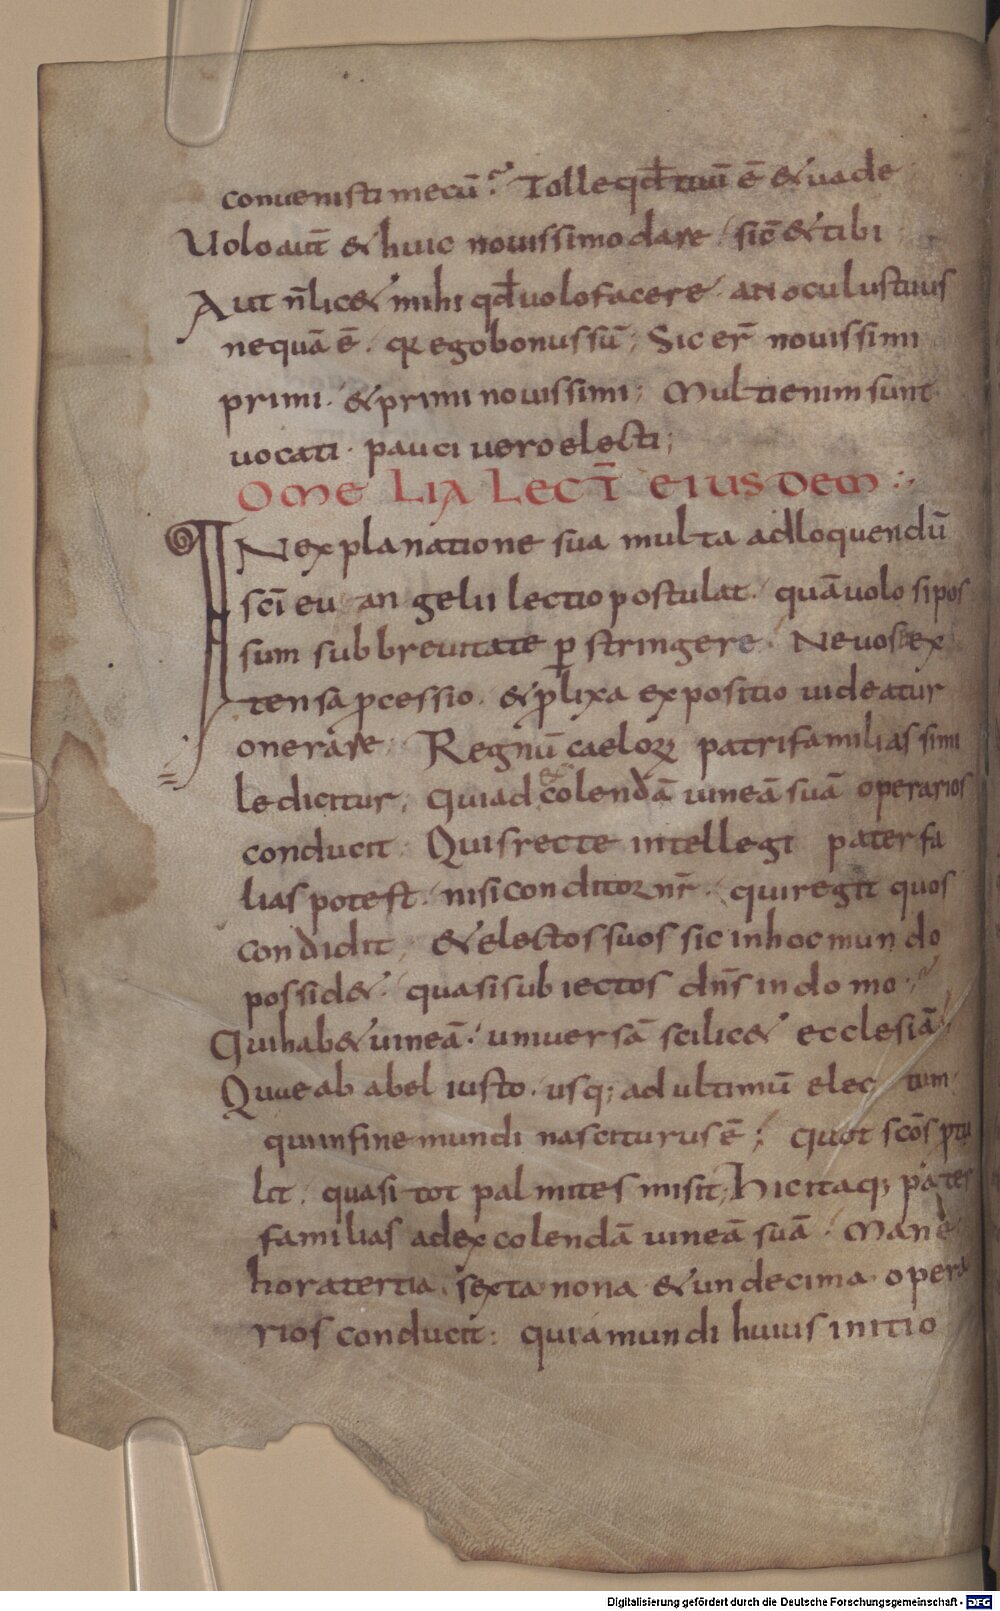 conuenisti mecū? Tolle qđ tuū ē & uade
Uolo aut̄ & huic nouissimo dare sic̄ & tibi
Aut n̄ lic& mihi qđ uolo facere. an oculus tuus
nequā ē. qr ego bonus sū; Sic er̄ nouissimi
primi. & primi nouissimi; Multi enim sunt
uocati. pauci uero electi;
OMELIA LECT̄ EIUSDEM
IN explanatione sua multa ad loquendū
sc̄i euangelii lectio postulat. quā uolo si pos
sum sub breuitate ꝑstringere. Ne uos & ex
tensa ꝓcessio. & ꝓlixa expositio uideatur
onerare. Regnū caeloꝝ patrifamilias simi
le dicitur; qui ad excolendā uineā suā operarios
conducit. Quis recte intellegi paterfa
lias potest. nisi conditor nr̄. qui regit quos
condidit, & electos suos sic in hoc mundo
possid&. quasi subiectos dn̄s in domo.
Qui hab& uineā. uniuersā scilic& ecclesiā;
Quae ab abel iusto. usq; ad ultimū electum
qui in fine mundi nasciturus ē; quot sc̄os ꝓtu
lit. quasi tot palmites misit; Hic itaq; pater
familias ad excolendā uineā suā. Mane
hora tertia. sexta nona & undecima opera
rios conducit: quia mundi huius initio
Digitalisierung gefördert durch die Deutsche Forschungsgemeinschaft - DFG